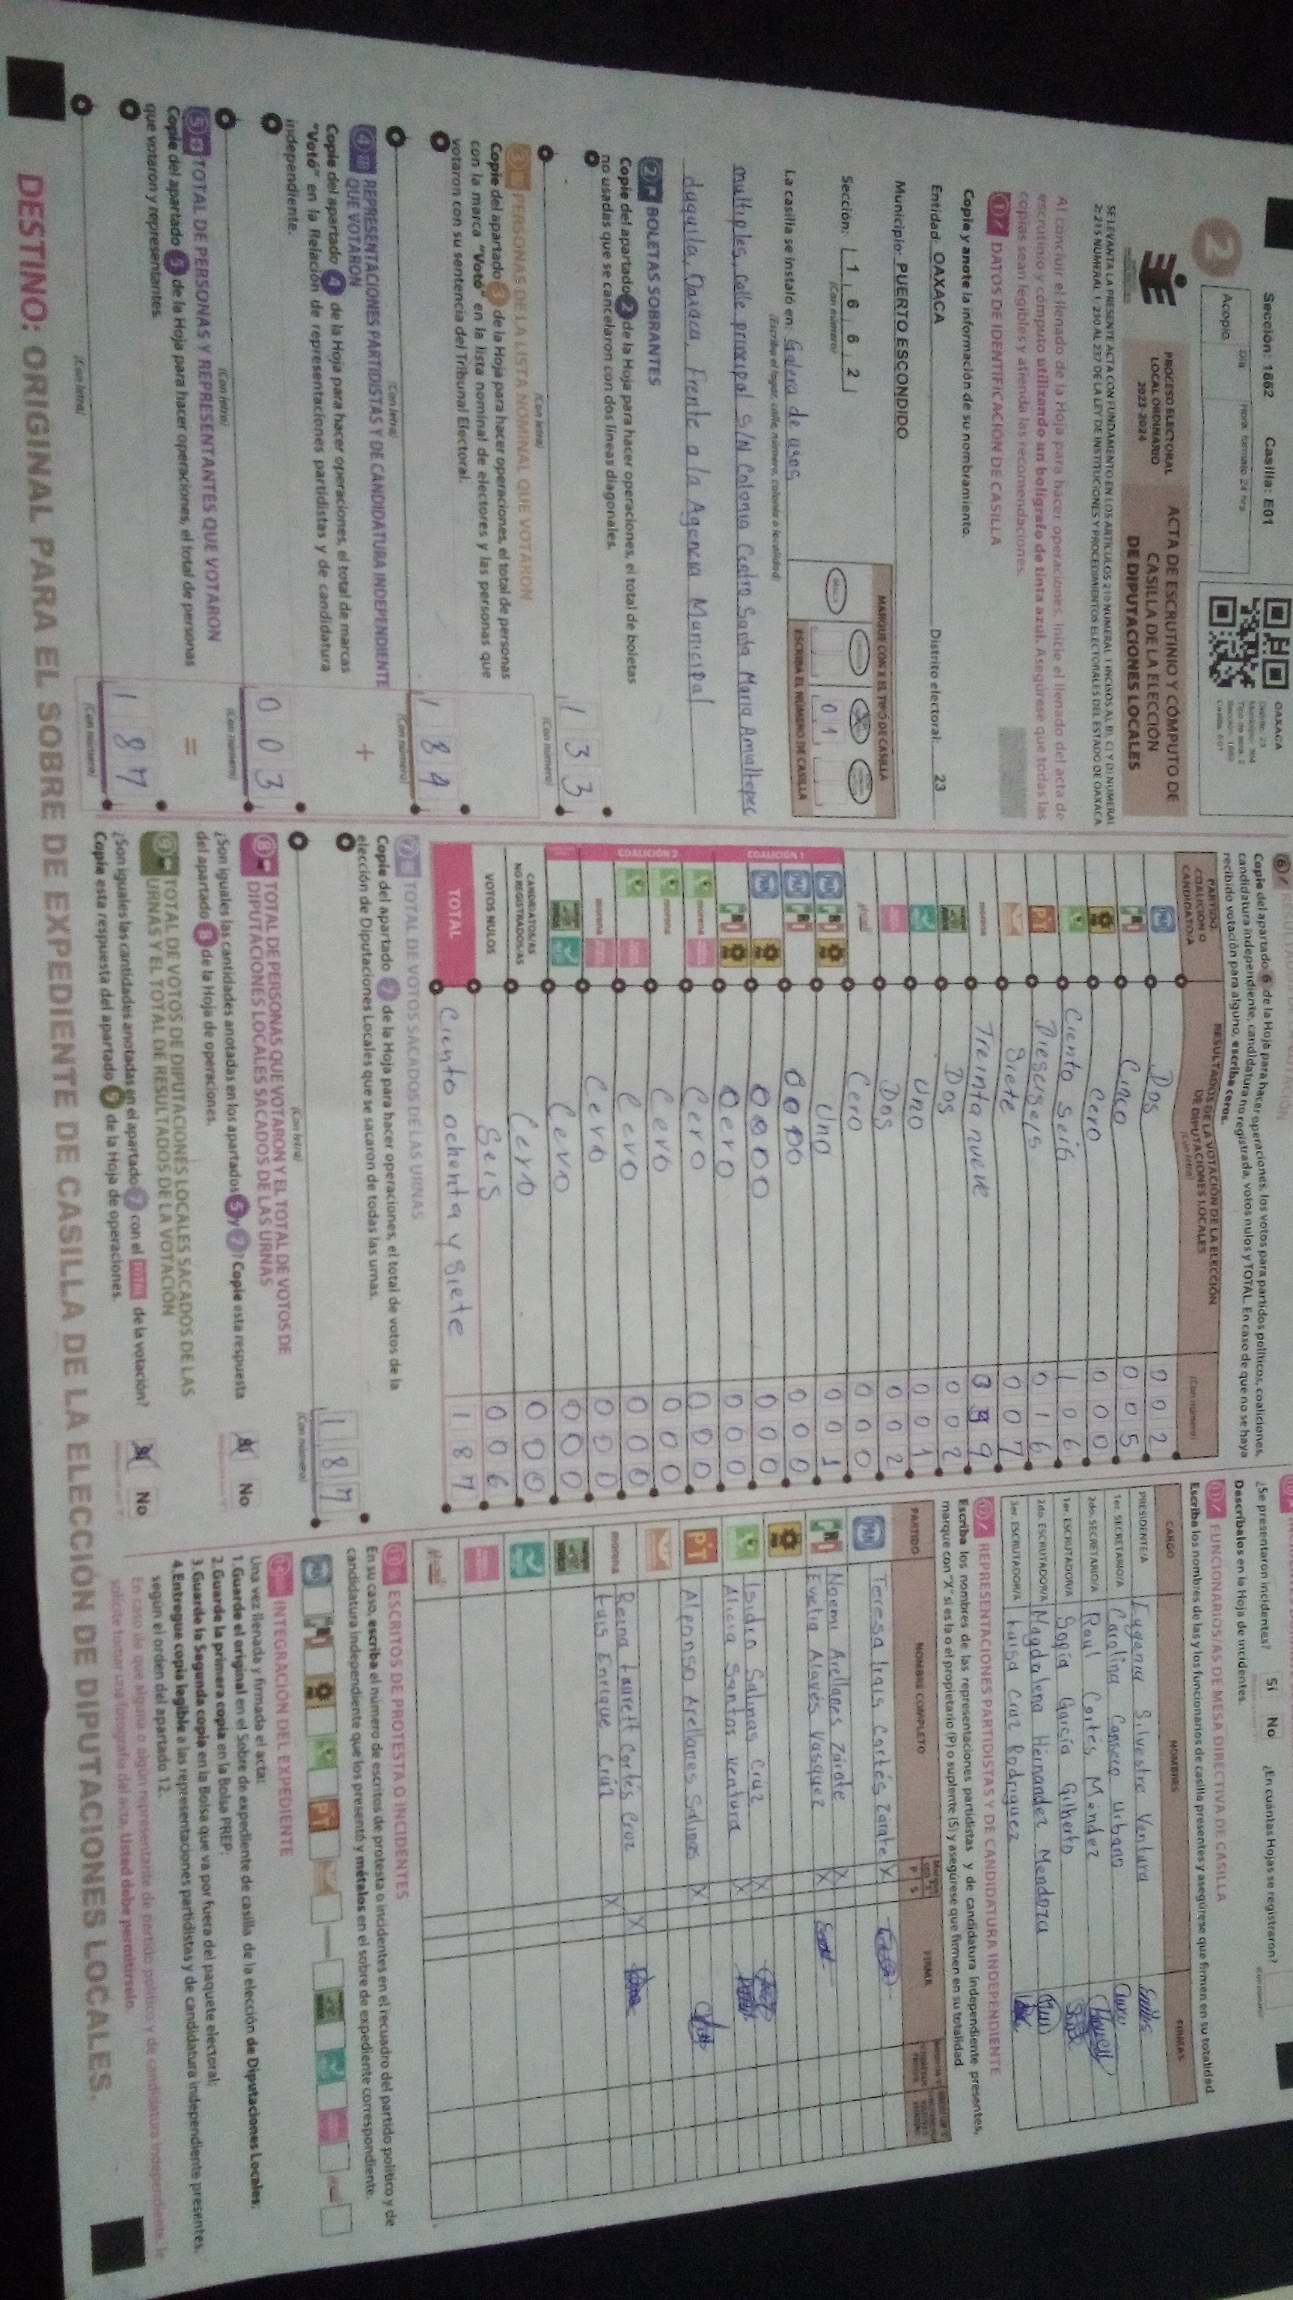 Sección: 1662 Casilla: E01
2
Acopio
Día
Hora formato 24 hrs.
OAXACA
PROCESO ELECTORAL
LOCAL ORDINARIO
2023-2024
ACTA DE ESCRUTINIO Y CÓMPUTO DE
CASILLA DE LA ELECCIÓN
DE DIPUTACIONES LOCALES
Al concluir el llenado de la Hoja para hacer operaciones, inicie el llenado del acta de
escrutinio y cómputo utilizando un bolígrafo de tinta azul. Asegúrese que todas las
copias sean legibles y atienda las recomendaciones.
1 DATOS DE IDENTIFICACIÓN DE CASILLA
Copie y anote la información de su nombramiento.
Entidad: OAXACA Distrito electoral: 23
Municipio: PUERTO ESCONDIDO
Sección: 1 6 6 2
(Con número)
MARQUE CON X EL TIPO DE CASILLA
0 1
ESCRIBA EL NÚMERO DE CASILLA
La casilla se instaló en: Galera de usos
(Escriba el lugar, calle, número, colonia o localidad)
multiples, Calle principal S/N Colonia Centro Santa Maria Amaltepec
duquila, Oaxaca, Frente a la Agencia Municipal
2 BOLETAS SOBRANTES
Copie del apartado 2 de la Hoja para hacer operaciones, el total de boletas
no usadas que se cancelaron con dos líneas diagonales.
1 3 3
(Con letra) (Con número)
3 PERSONAS DE LA LISTA NOMINAL QUE VOTARON
Copie del apartado 3 de la Hoja para hacer operaciones, el total de personas
con la marca "Votó" en la lista nominal de electores y las personas que
votaron con su sentencia del Tribunal Electoral.
1 8 4
(Con letra) (Con número)
4 REPRESENTACIONES PARTIDISTAS Y DE CANDIDATURA INDEPENDIENTE
QUE VOTARON
+
Copie del apartado 4 de la Hoja para hacer operaciones, el total de marcas
"Votó" en la Relación de representaciones partidistas y de candidatura
independiente.
0 0 3
(Con letra) (Con número)
5 TOTAL DE PERSONAS Y REPRESENTANTES QUE VOTARON
=
Copie del apartado 5 de la Hoja para hacer operaciones, el total de personas
que votaron y representantes.
1 8 7
(Con letra) (Con número)
Copie del apartado 6 de la Hoja para hacer operaciones, los votos para partidos políticos, coaliciones,
candidatura independiente, candidatura no registrada, votos nulos y TOTAL. En caso de que no se haya
recibido votación para alguno, escriba ceros.
PARTIDO,
COALICIÓN O
CANDIDATO/A
RESULTADOS DE LA VOTACIÓN DE LA ELECCIÓN
DE DIPUTACIONES LOCALES
(Con letra)
(Con número)
PAN Dos 0 0 2
PRI Cinco 0 0 5
PRD Cero 0 0 0
Ciento seis 1 0 6
PT Dieseiseis 0 1 6
Siete 0 0 7
morena Treinta nueve 3 9
Dos 0 0 2
Uno 0 0 1
Dos 0 0 2
Cero 0 0 0
COALICIÓN 1
Uno 0 0 1
0 0 0
0 0 0
0ero 0 0 0
COALICIÓN 2
Cero 0 0 0
Cero 0 0 0
Cero 0 0 0
Cero 0 0 0
Cero 0 0 0
CANDIDATOS/AS
NO REGISTRADOS/AS Cero 0 0 0
VOTOS NULOS Seis 0 0 6
TOTAL Ciento ochenta y siete 1 8 7
7 TOTAL DE VOTOS SACADOS DE LAS URNAS
Copie del apartado 7 de la Hoja para hacer operaciones, el total de votos de la
elección de Diputaciones Locales que se sacaron de todas las urnas.
1 8 7
(Con letra) (Con número)
8 TOTAL DE PERSONAS QUE VOTARON Y EL TOTAL DE VOTOS DE
DIPUTACIONES LOCALES SACADOS DE LAS URNAS
¿Son iguales las cantidades anotadas en los apartados 5 y 7? Copie esta respuesta
del apartado 8 de la Hoja de operaciones.
Sí No
9 TOTAL DE VOTOS DE DIPUTACIONES LOCALES SACADOS DE LAS
URNAS Y EL TOTAL DE RESULTADOS DE LA VOTACIÓN
¿Son iguales las cantidades anotadas en el apartado 7 con el TOTAL de la votación?
Copie esta respuesta del apartado 9 de la Hoja de operaciones.
Sí No
¿Se presentaron incidentes? Sí No ¿En cuántas Hojas se registraron?
Descríbalos en la Hoja de incidentes.
11 FUNCIONARIOS/AS DE MESA DIRECTIVA DE CASILLA
Escriba los nombres de las y los funcionarios de casilla presentes y asegúrese que firmen en su totalidad
CARGO NOMBRES FIRMAS
PRESIDENTE/A Eugenia Silvestre Ventura
1er. SECRETARIO/A Carolina Canseco Urbano
2do. SECRETARIO/A Raul Cortés Mendez
1er. ESCRUTADOR/A Sofía García Gilberto
2do. ESCRUTADOR/A Magdalena Hernandez Mendoza
3er. ESCRUTADOR/A Luisa Cruz Rodriguez
12 REPRESENTACIONES PARTIDISTAS Y DE CANDIDATURA INDEPENDIENTE
Escriba los nombres de las representaciones partidistas y de candidatura independiente presentes,
marque con "X" si es la o el propietario (P) o suplente (S) y asegúrese que firmen en su totalidad
PARTIDO NOMBRE COMPLETO P S FIRMA
PAN Teresa Irais Cortés Zarate X
Noemi Arellanes Zárate X
PRI Evelia Alavés Vasquez X
PRD
Isidro Salinas Cruz X
Alicia Santos Ventura X
PT Alfonso Arellanes Salinas X
Reina Laurett Cortés Cruz X
morena Luis Enrique Cruz X
13 ESCRITOS DE PROTESTA O INCIDENTES
En su caso, escriba el número de escritos de protesta o incidentes en el recuadro del partido político y de
candidatura independiente que los presentó y métalos en el sobre de expediente correspondiente.
14 INTEGRACIÓN DEL EXPEDIENTE
Una vez llenada y firmada el acta:
1. Guarde el original en el Sobre de expediente de casilla de la elección de Diputaciones Locales;
2. Guarde la primera copia en la Bolsa PREP;
3. Guarde la Segunda copia en la Bolsa que va por fuera del paquete electoral;
4. Entregue copia legible a las representaciones partidistas y de candidatura independiente presentes,
según el orden del apartado 12.
En caso de que alguna o algún representante de partido político y de candidatura independiente, le
solicite tomar una fotografía del acta, Usted debe permitírselo.
DESTINO: ORIGINAL PARA EL SOBRE DE EXPEDIENTE DE CASILLA DE LA ELECCIÓN DE DIPUTACIONES LOCALES.